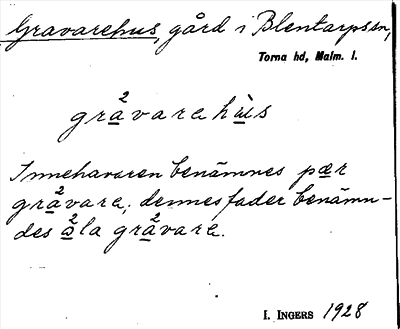 Gravarehus, gård i Blentarps sn,
Torna hd, Malm. l.
gra̲²vara hù̲s
Innehavaren benämnes pæ̲r
gra̲²vara; dennes fader benämn-
des a̲²la gra̲²vara.
I. INGERS 1928